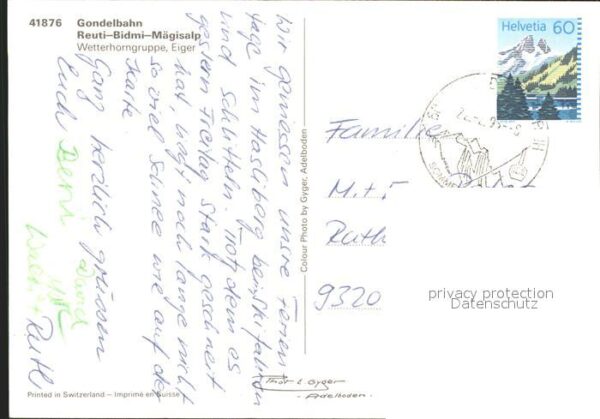 41876 Gondelbahn
Reuti–Bidmi–Mägisalp
Wetterhorngruppe, Eiger
Wir geniessen unsre Ferien
tage im Hasliberg bei Skifahren
und schlitteln. Trotzdem es
gestern Freitag stark geschneit
hat, liegt noch lange nicht
so viel Schnee wie auf der
Karte.
Ganz herzlich grüssen
Euch Beni David
Walter + Ruth
Colour Photo by Gyger, Adelboden
Helvetia 60
Familien
M. + F.
Ruth
9320
privacy protection
Datenschutz
Thor L. Gyger
- Adelboden -
Printed in Switzerland – Imprimé en Suisse